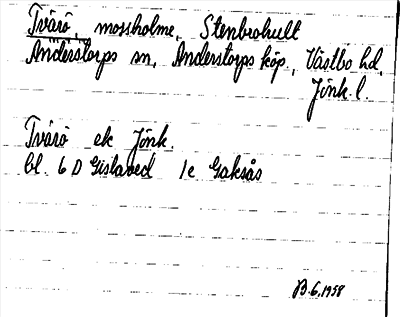 Tvärö, mossholme, Stenbrohult
Anderstorps sn, Anderstorps köp., Västbo hd,
Jönk. l.
Tvärö ek Jönk.
bl. 6 D Gislaved 1e Gaksås
B.6.1958